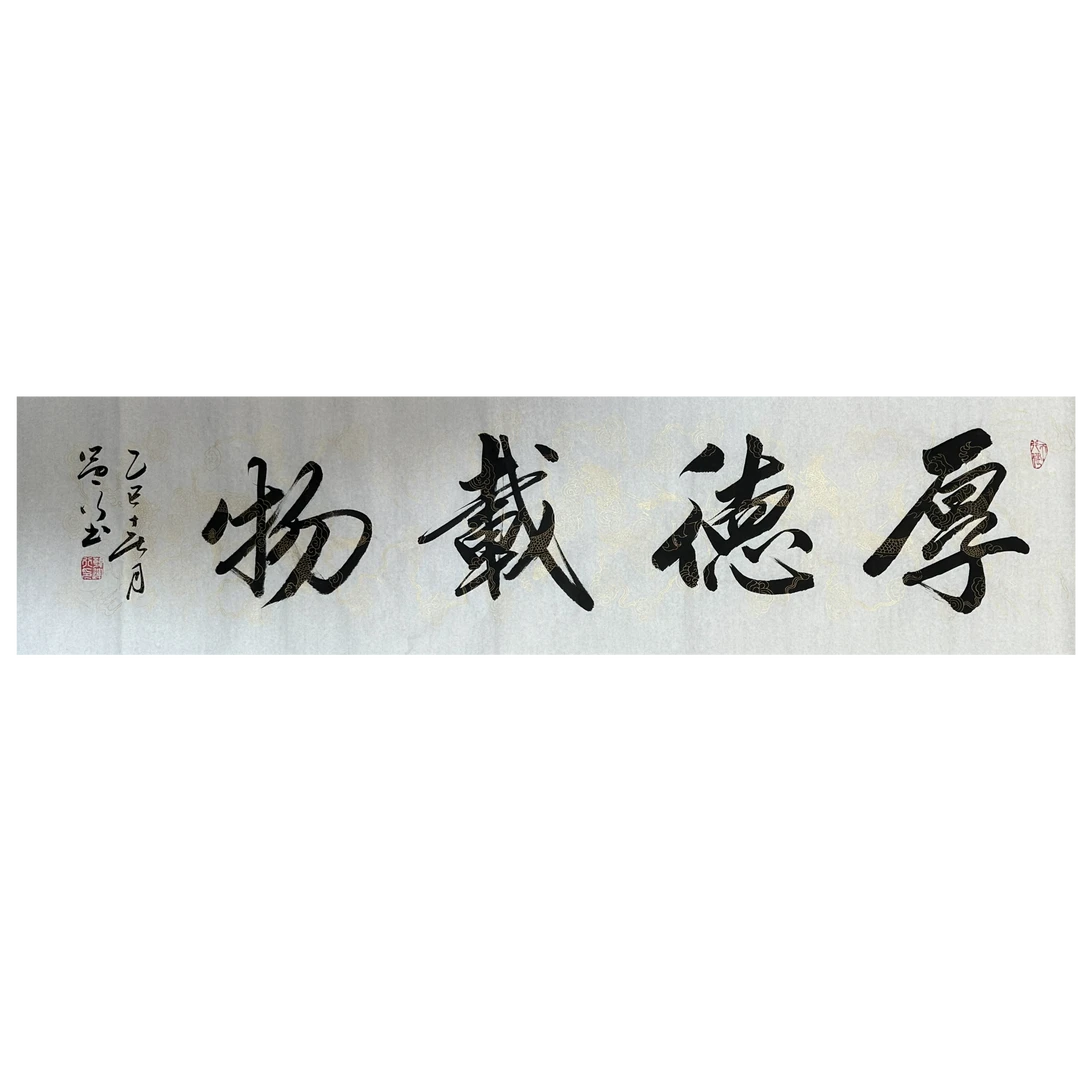 厚德載物
乙巳十二月